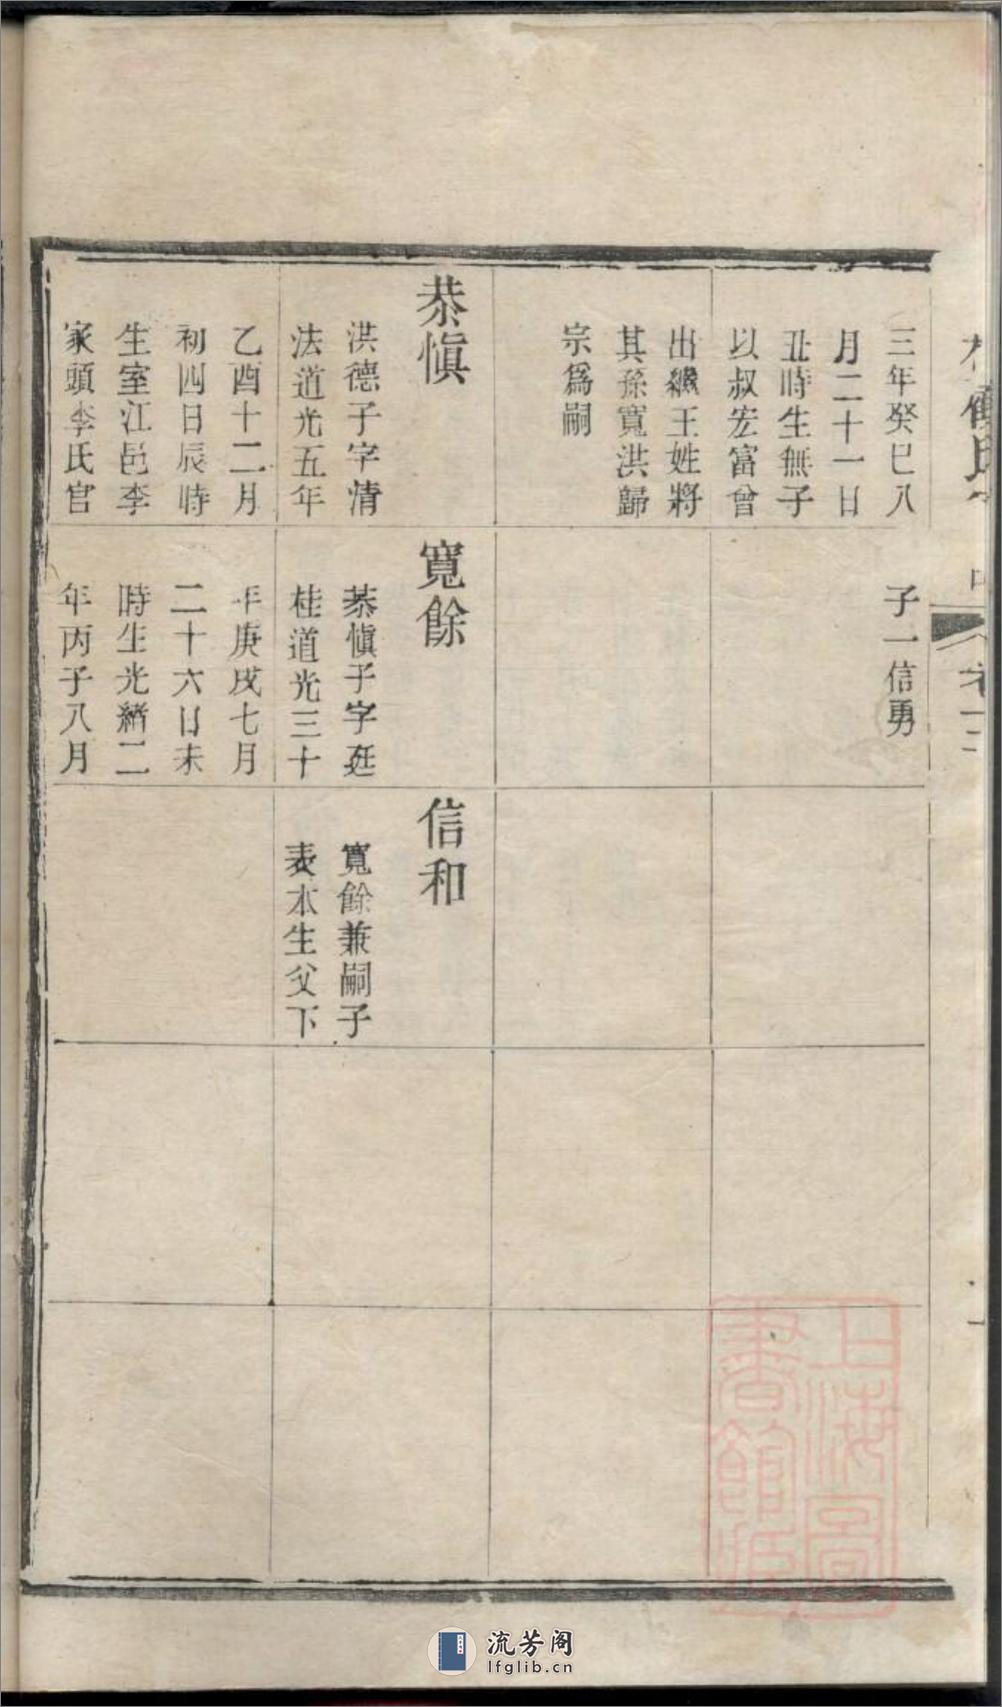 三年癸巳八
月二十一日
丑時生無子
以叔宏富曾
出繼王姓將
其孫寬洪歸
宗爲嗣
恭愼
洪德子字清
法道光五年
乙酉十二月
初四日辰時
生室江邑李
家頭李氏官
子一信勇
寬餘
恭愼子字廷
桂道光三十
年庚戌七月
二十六日未
時生光緒二
年丙子八月
信和
寬餘兼嗣子
表本生父下
上海圖
書館
流芳阁
lfglib.cn